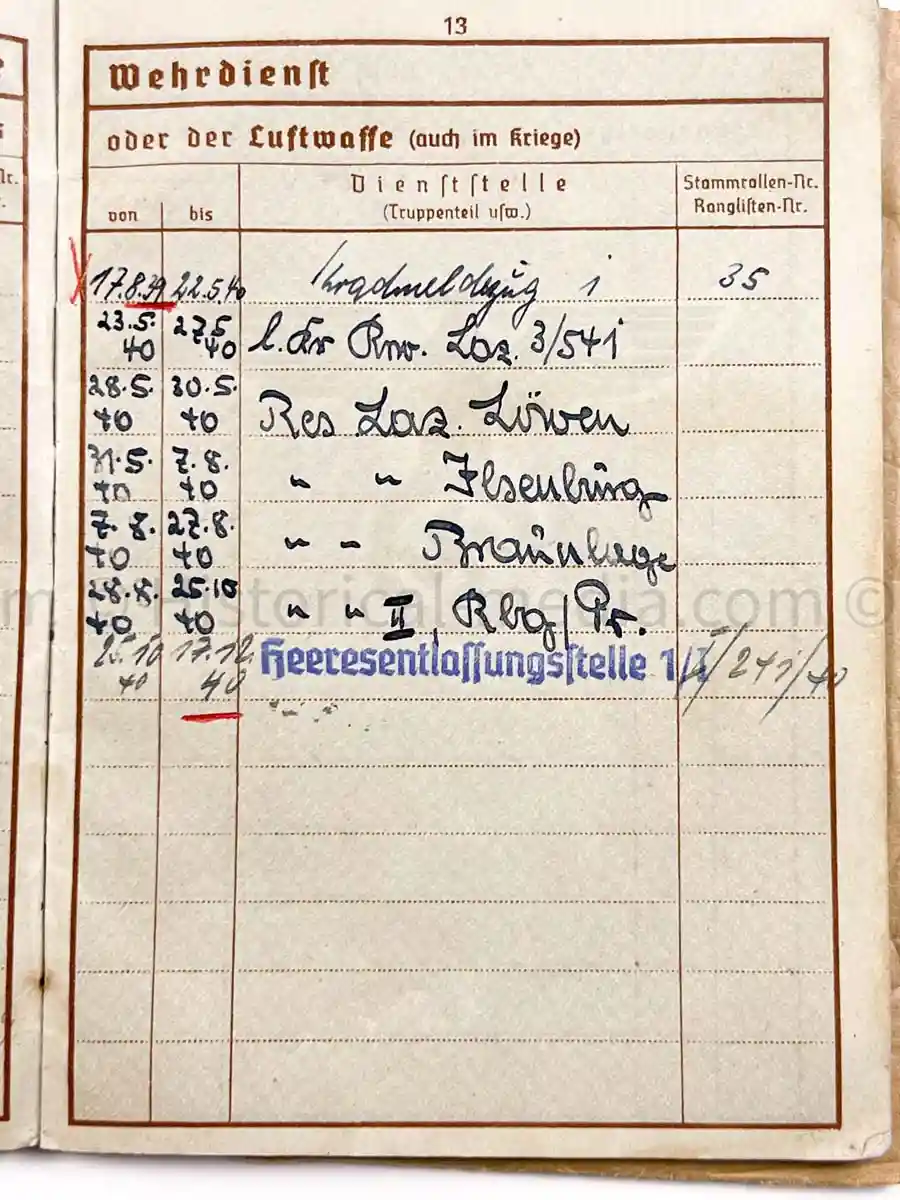 13
Wehrdienst
oder der Luftwaffe (auch im Kriege)
von
bis
Dienststelle
(Truppenteil usw.)
Stammrollen-Nr.
Ranglisten-Nr.
17.8.39 22.5.40 Kradmeldezug 1 35
23.5. 40 27.5 40 Laz. 3/541
28.5. 40 30.5. 40 Res. Laz. Löwen
31.5. 40 7.8. 40 " " Ilsenburg
7.8. 40 27.8. 40 " " Braunlage
28.8. 40 25.10 40 " " II, Kbg/Pr.
25.10 40 17.12. 40 Heeresentlassungsstelle 1/I /241/40
historicalmedia.com ©